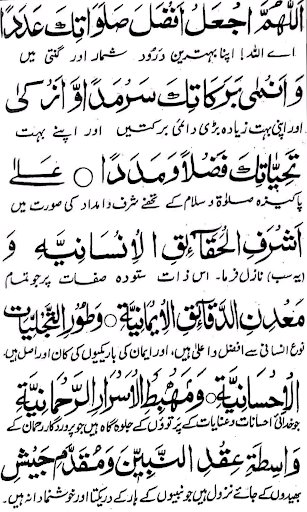 اَللّٰهُمَّ اجْعَلْ اَفْضَلَ صَلَوَاتِكَ عَدَدًا
اے اللہ! اپنا بہترین درود شمار اور گنتی میں
وَاَنْمٰی بَرَكَاتِكَ سَرْمَدًا وَّاَزْكٰی
اور اپنی بہت زیادہ بڑی دائمی برکتیں اور اپنے بہت
تَحِيَّاتِكَ فَضْلًا وَّمَدَدًا ○ عَلٰی
پاکیزہ صلوٰۃ و سلام کے تحفے شرف و امداد کی صورت میں
اَشْرَفِ الْحَقَآئِقِ الْاِنْسَانِيَّةِ وَ
(یہ سب) نازل فرما۔ اس ذات ستودہ صفات پر جو تمام
مَعْدِنِ الدَّقَآئِقِ الْاِيْمَانِيَّةِ ○ وَطُوْرِ التَّجَلِّيَاتِ
نوع انسانی سے افضل و اعلیٰ ہیں، اور ایمان کی باریکیوں کی کان اور اصل ہیں،
الْاِحْسَانِيَّةِ ○ وَمَهْبِطِ الْاَسْرَارِ الرَّحْمَانِيَّةِ
جو خدائی احسانات و عنایات کے پرتووں کے جلوہ گاہ ہیں جو پروردگار رحمان کے
وَاسِطَةِ عِقْدِ النَّبِيِّيْنَ وَمُقَدَّمِ جَيْشِ
بھیدوں کے جائے نزول ہیں جو نبیوں کے ہار کے دریکتا اور خوشنما دانہ ہیں،